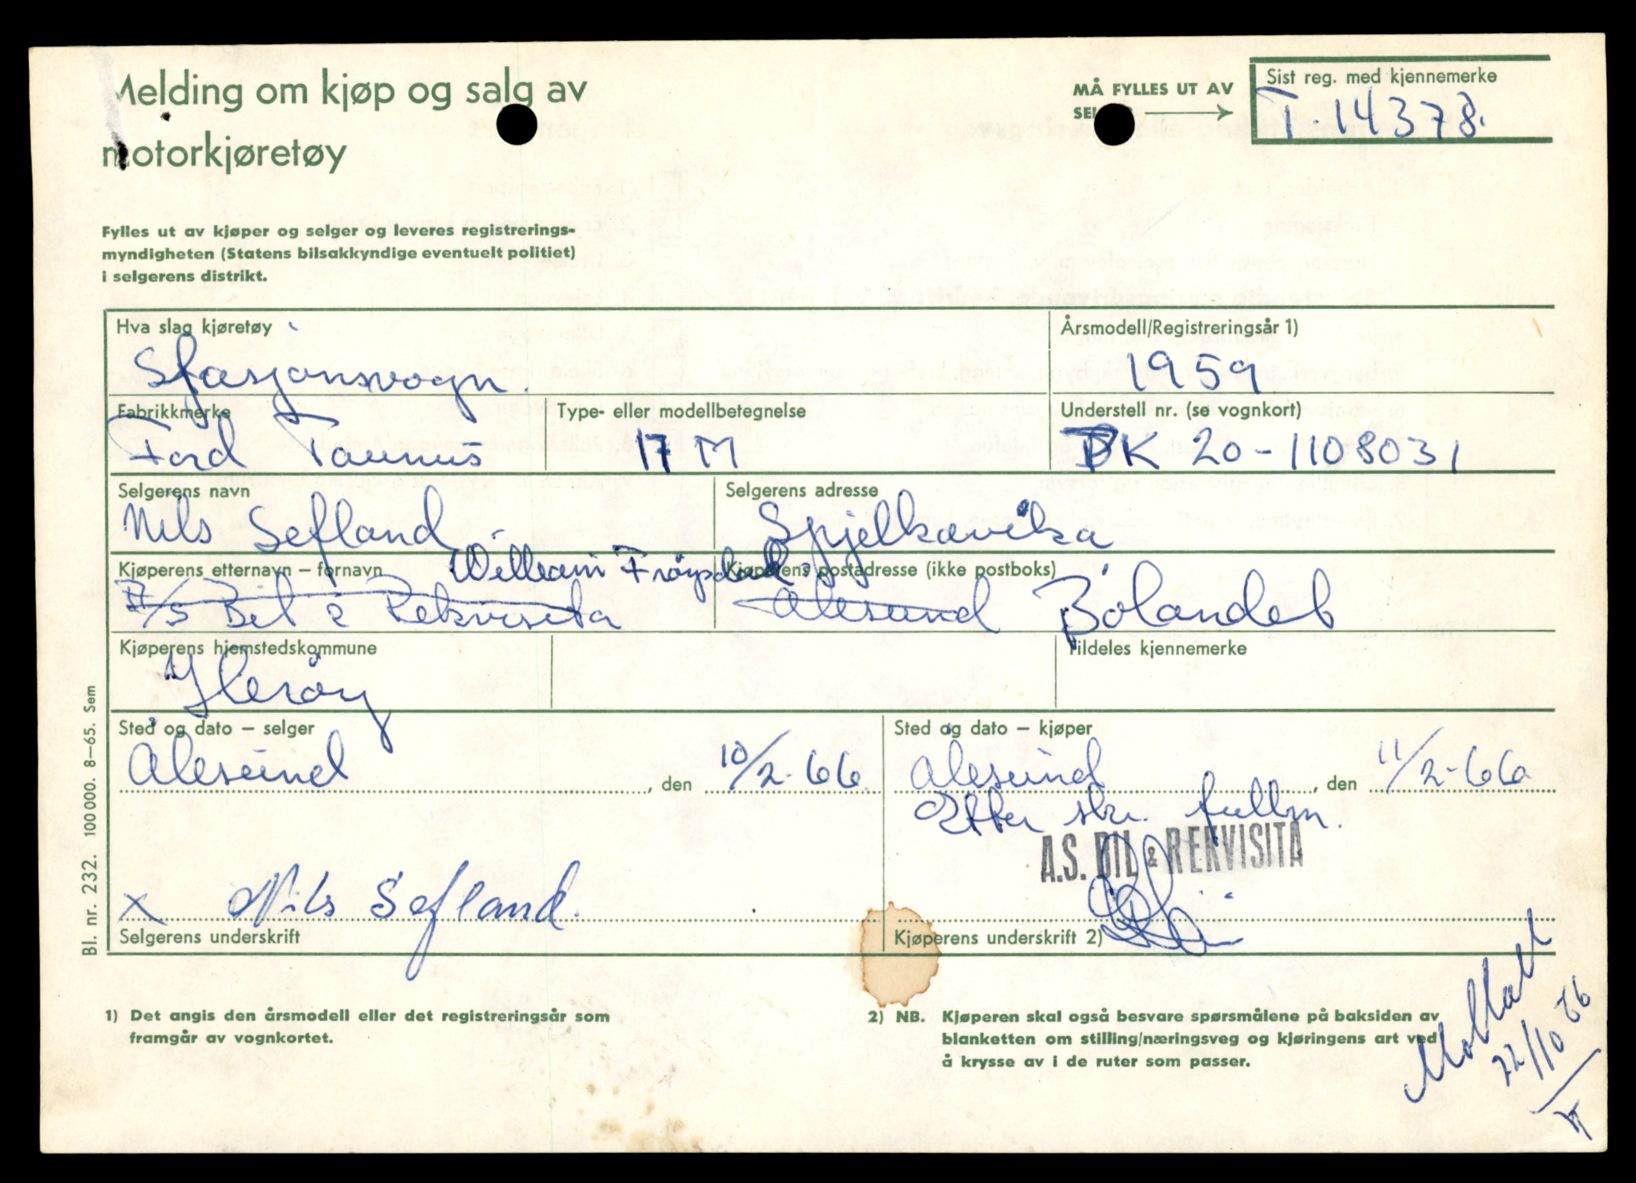 Melding om kjøp og salg av
motorkjøretøy
MÅ FYLLES UT AV
Sist reg. med kjennemerke
T-14378.
Fylles ut av kjøper og selger og leveres registrerings-
myndigheten (Statens bilsakkyndige eventuelt politiet)
i selgerens distrikt.
Hva slag kjøretøy
Stasjonsvogn.
Årsmodell/Registreringsår 1)
1959
Fabrikkmerke
Ford Taunus
Type- eller modellbetegnelse
17 M
Understell nr. (se vognkort)
BK 20-1108031
Selgerens navn
Nils Sefland
Selgerens adresse
Spjelkavika
Kjøperens etternavn – fornavn
William
A/S Bil & Rekvisita
Kjøperens postadresse (ikke postboks)
Ålesund
Kjøperens hjemstedskommune
Herøy
Tildeles kjennemerke
Sted og dato – selger
Ålesund, den 10/2-66
Sted og dato – kjøper
Ålesund, den 11/2-66
Etter skr. fullm.
A.S. BIL & REKVISITA
x Nils Sefland.
Selgerens underskrift
Kjøperens underskrift 2)
Bl. nr. 232. 100 000. 8–65. Sem
1) Det angis den årsmodell eller det registreringsår som
framgår av vognkortet.
2) NB. Kjøperen skal også besvare spørsmålene på baksiden av
blanketten om stilling/næringsveg og kjøringens art ved
å krysse av i de ruter som passer.
Mottatt
22/10 66